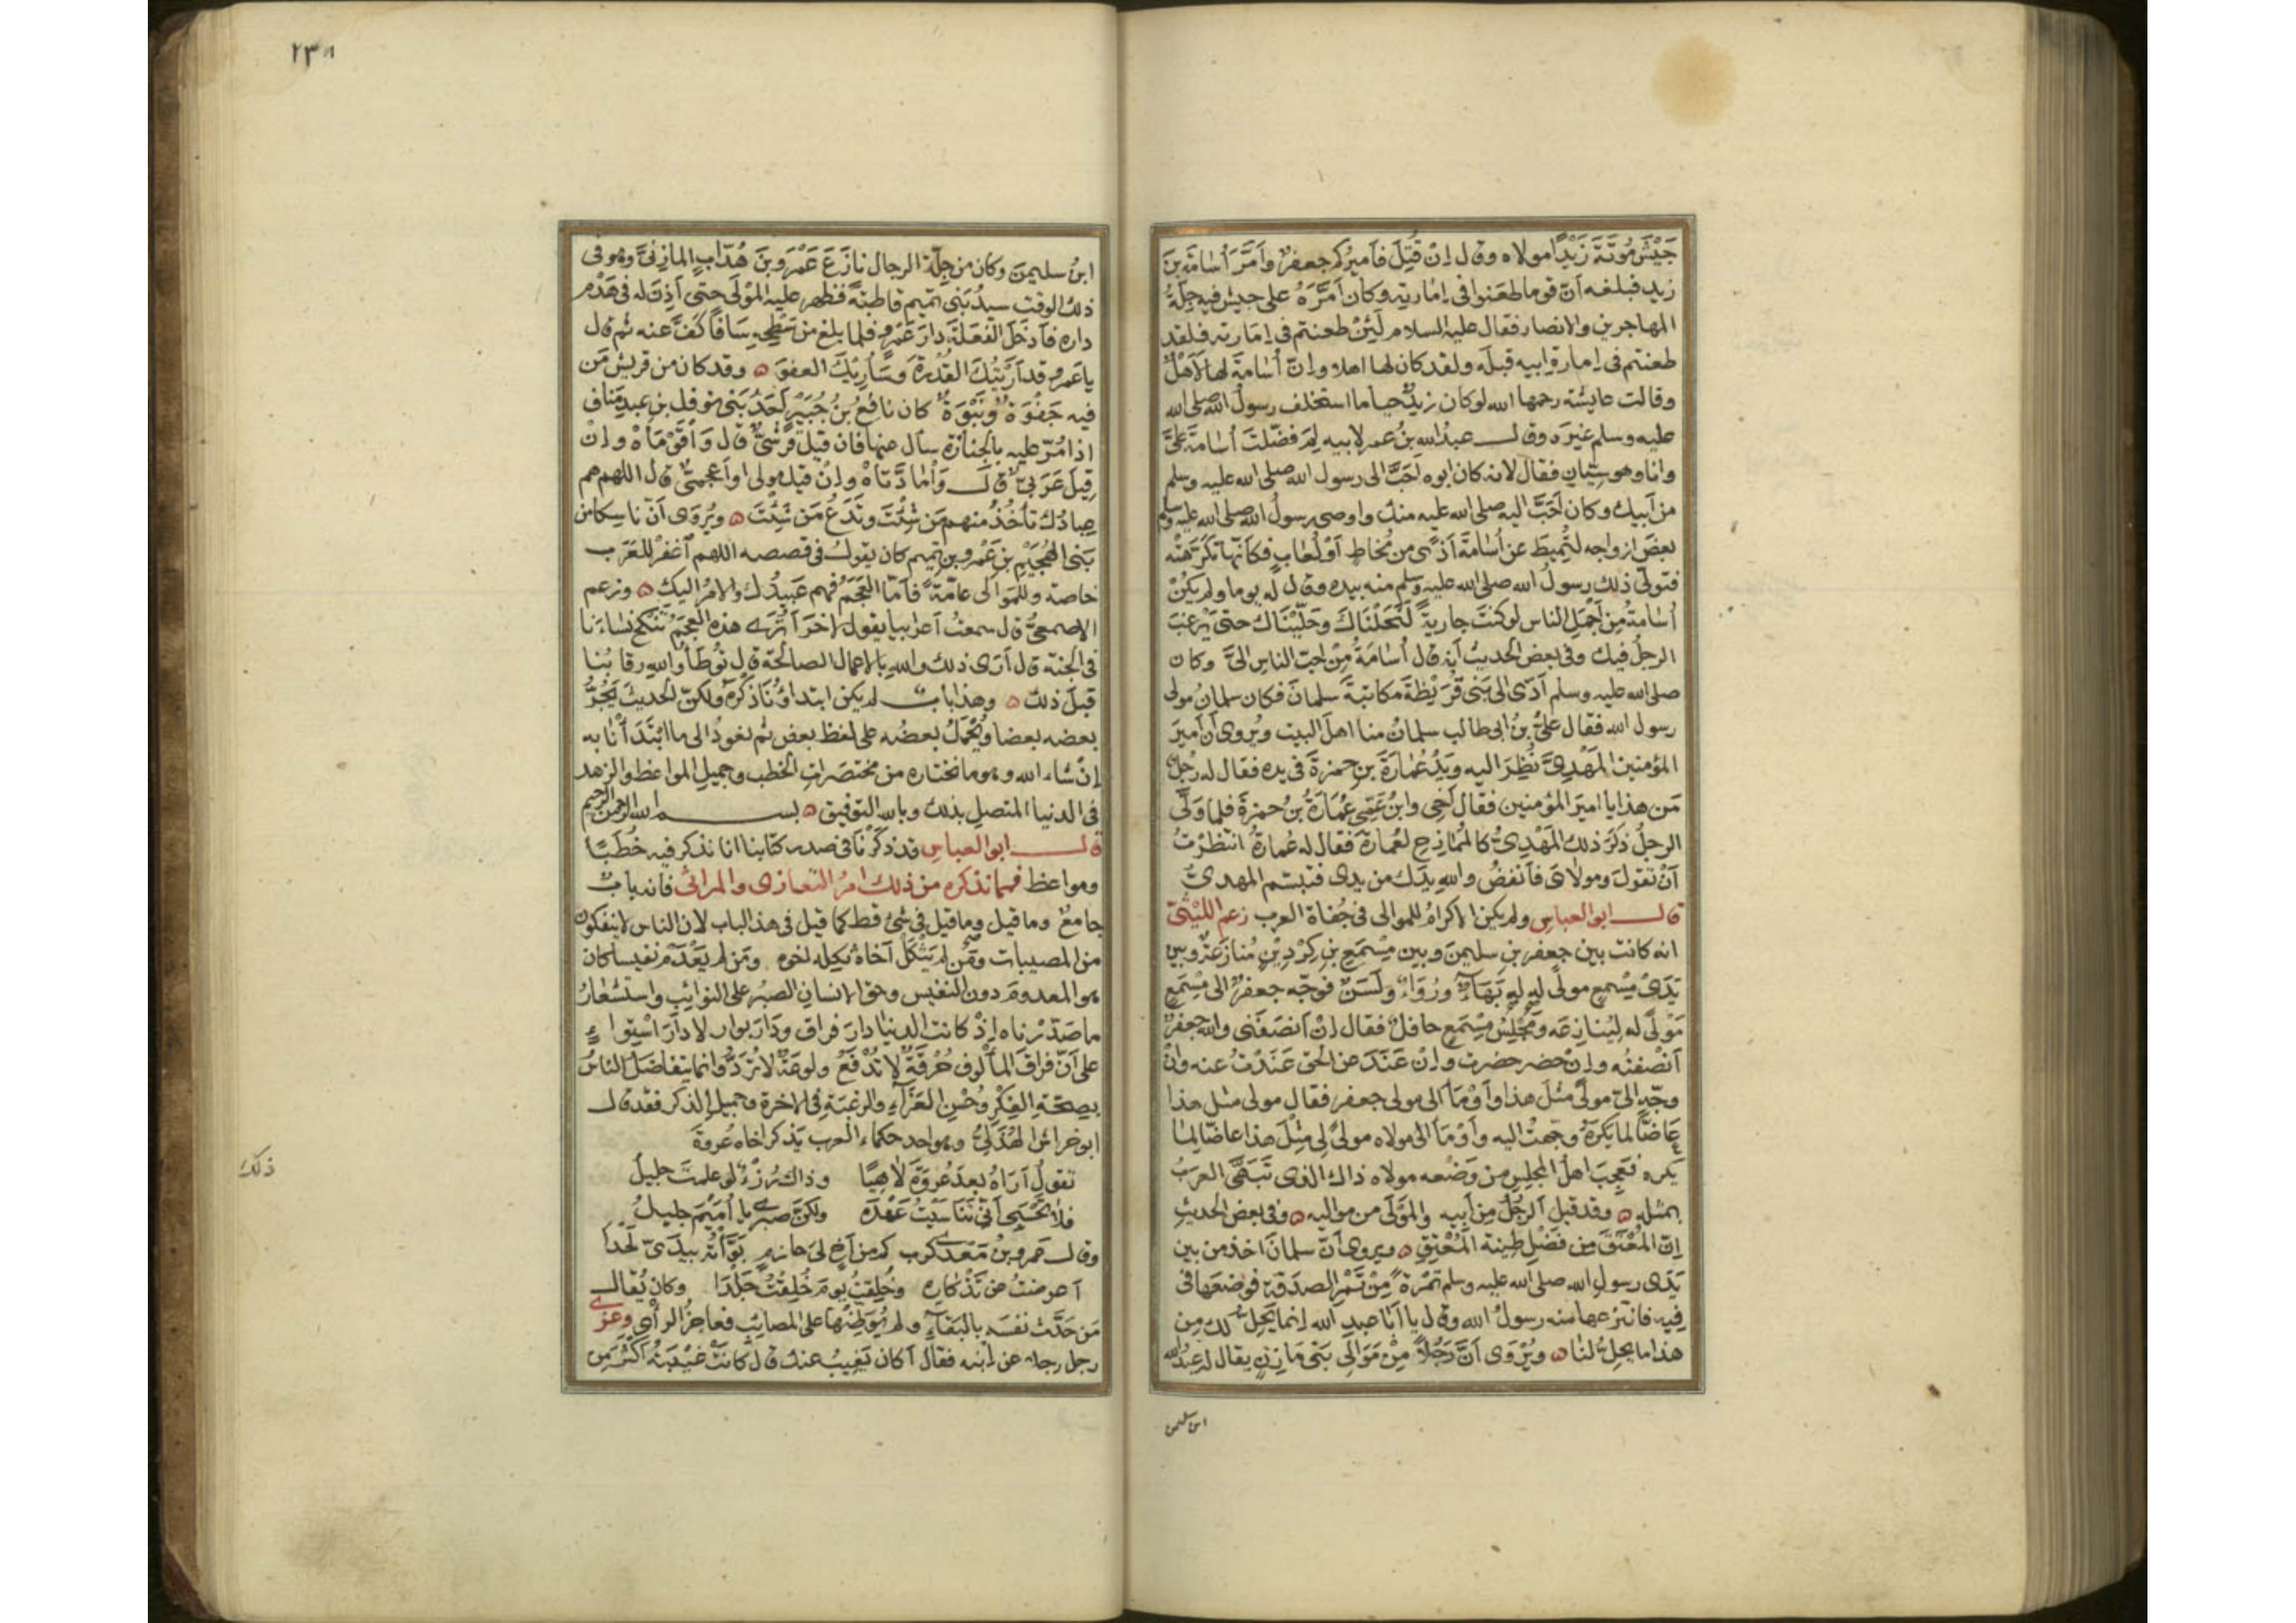 جَيْشَ مُؤتَةَ زَيْدًا مولاه وقال اِنْ قُتِلَ فَأَميرُكم جعفرٌ وأَمَّرَ أُسَامَةَ بنَ
زيدٍ فبلغه أنّ قوما طعَنوا فى اِمَارتِه وكان أَمَّرَهُ على جيشٍ فيه جِلَّةُ
المهاجرين والانصار فقال عليه السلام لَئِنْ طعنتم فى اِمَارته فلقد
طعنتم فى اِمارةِ ابيه قبلَه ولقد كان لها اهلا واِنّ أُسَامةَ لها لَأَهْلٌ
وقالت عايشة رحمها الله لو كان زيدٌ حيا ما استخلف رسولُ الله صلى الله
عليه وسلم غيرَه وقال عبدُ الله بنُ عمر لابيه لِمَ فضّلتَ أُسَامَةَ عَلَىَّ
وانا وهو سِيّانِ فقال لانه كان ابوه أَحَبَّ الى رسول الله صلى الله عليه وسلم
من أَبيك وكان أَحَبَّ اليه صلى الله عليه منك واوصى رسولُ الله صلى الله عليه وسلم
بعضَ ازواجه لتُمِيطَ عن أُسَامَةَ أَذًى من مُخاطٍ أوْ لُعَابٍ فكأنّها تكَرَّهَتْه
فتولّى ذلك رسولُ الله صلى الله عليه وسلم منه بيده وقال له يوما ولم يكُنْ
أُسَامةُ مِن أَجْمَلِ الناس لو كنتَ جاريةً لَنَحَلْنَاكَ وحَلَّيْنَاك حتى يَرْغَبَ
الرجلُ فيك وفى بعض الحديث أَنه قال أُسَامَةُ مِنْ احبّ الناس الىّ وكان
صلى الله عليه وسلم أَدّى الى بَنى قُرَيْظَةَ مكاتبةَ سلمانَ فكان سلمانُ مولى
رسول الله فقال علىُّ بنُ ابى طالب سلمانُ منا اهلَ البيت ويُروى أَن أَميرَ
المؤمنين المَهْدِىَّ نُظِرَ اليه ويَدُ عُمَارَةَ بنِ حمزةَ فى يده فقال له رجُلٌ
مَن هذا يا اميرَ المؤمنين فقال أخى وابنُ عَمِّى عُمَارَةُ بنُ حمزةَ فلما وَلَّى
الرجلُ ذكَرَ ذلك المَهْدِىُّ كالمُمَازِحِ لعُمَارةَ فقال له عُمارةُ انتَظَرْتُ
أنْ تقولَ ومولاىَ فأَنفُضُ والله يدَك من يدى فتبسّم المهدىُّ
قال ابو العباسِ ولم يكن الاكرامُ للموالى فى جُفَاة العرب زعم الليْثىُّ
انه كانت بين جعفرِ بنِ سليمن وبين مِسْمَعِ بنِ كِرْدِينٍ مُنازَعةٌ وبين
يَدَىْ مِسْمعٍ مولًى له له بَهَاءٌ ورُوَاءٌ ولَسَنٌ فوجّه جعفرٌ الى مِسْمَعٍ
مَوْلًى له ليُنازِعَه ومَجْلِسُ مِسْمَعٍ حافلٌ فقال اِنْ أَنصَفَنى والله جعفرٌ
أَنْصفتُه واِنْ حضر حضرت واِنْ عَنَدَ عن الحق عَنَدْتُ عنه واِنْ
وجّه الىّ مولًى مثلَ هذا وأَوْمَأَ الى مولى جعفر فقال مولى مثل هذا
عَاضًّا لما يكرهُ وجهتُ اليه وأَوْمَأَ الى مولاه مولًى لى مِثْلَ هذا عاضًّا لما
يكره فعجِبَ اهلُ المجلِسِ من وَضْعه مولاه ذاك الذى تَبَهَّى العرَبُ
بمثله ۞ وقد قيل الرجُلُ مِن أَبيه والمَوْلَى من مواليه ۞ وفى بعض الحديث
اِنّ المُعْتَقَ مِن فَضْلِ طِينة المُعْتِقِ ۞ ويروى أنّ سلمانَ اخذ من بين
يَدَى رسولِ الله صلى الله عليه وسلم تمْرَةً مِنْ تَمْرِ الصدَقة فوضَعَها فى
فِيه فانتزعها منه رسولُ الله وقال يا أَبا عبدِ الله اِنما يَحِلّ لك مِن
هذا ما يحِلّ لنا ۞ ويُرْوَى أنَّ رَجُلاً مِنْ مَوَالِى بَنى مَازنٍ يقال له عبدُ الله
ابن سليمن
٢٣٨
ابنُ سليمنَ وكان من جِلّة الرجال نازَعَ عَمْرَو بنَ هُدّابٍ المازنىَّ وهو فى
ذلك الوقت سيدُ بَنى تميم قاطبةً فظهر عليه المَوْلَى حتى أُذِنَ له فى هَدْمِ
داره فأَدْخَلَ الفَعَلَةَ دارَ عَمْرٍو فلما بلغ من سَطْحِهِ سَافًا كَفَّ عنه ثم قال
يا عَمرو قد أَرَيْتُكَ القُدْرةَ وسَأُرِيكَ العفوَ ۞ وقد كان من قريش مَن
فيه جَفْوَةٌ ونَبْوَةٌ كان نافعُ بنُ جُبَيْرٍ أَحَدُ بَنى نوفل بنِ عبدِ مَناف
اذا مُرّ عليه بالجنازة سأل عنها فان قيل قُرَشىٌّ قال وَا قَوْمَاهْ واِنْ
قِيلَ عَرَبىٌّ قال وَا مَادَّتاهْ واِنْ قيل مولى او أَعجمىٌّ قال اللهم هم
عِبادُك تأخُذُ منهم مَن شِئْتَ وتَدَعُ مَن شِئْتَ ۞ ويُرْوَى أنّ ناسكا من
بَنى الهُجَيْمِ بنِ عَمْرو بنِ تميم كان يقول فى قصصه اللهم اغفرْ للعَرَبِ
خاصّة وللموالى عامّةً فأَمّا العَجَمُ فهم عَبِيدُك والامْرُ اليك ۞ وزعم
الاصمعىُّ قال سمعتُ أعرابيا يقول لآخرَ أَتُرَى هذه العجَمَ تنكح نساءَنا
فى الجنة قال أَرَى ذلك والله بالاعمال الصالحة قال تُوطَأُ والله رِقابُنا
قبل ذلك ۞ وهذا بابٌ لم يكن ابتدأْنا ذكْرَهُ ولكنّ الحديثَ يَجُرُّ
بعضه بعضا ويُحْمَلُ بعضُه على لفظ بعض ثم نعودُ الى ما ابْتَدَأْنا به
اِنْ شاء الله وهو ما نختاره من مختصَراتِ الخطب وجميلِ المواعظ والزهد
فى الدنيا المتصلِ بذلك وبالله التوفيق ۞ بسم الله الرحمن الرحيم
قال ابو العباسِ قد ذكرْنا فى صدر كتابنا انا نذكر فيه خُطَبًا
ومواعظَ فمما نذكره من ذلك امرُ التعازى والمراثى فانه بابٌ
جامعٌ وما قيل وما قيل فى شئ قط كما قيل فى هذا الباب لان الناس لا ينفكون
من المصيبات ومَن لم يَثْكَلْ أَخاه ثكِله اخوه ومَن لم يَعْدَمْ نفيسا كان
هو المعدومَ دون النفيس وحقُّ الانسان الصبرُ على النوائبِ واستشعارُ
ما صَدّرْناه اِذْ كانت الدنيا دارَ فراق ودَارَ بوار لا دارَ اسْتِواءٍ
على أَنّ فراقَ المألوف حُرْقةٌ لا تُدْفَعُ ولوعةٌ لا تُرَدُّ وانما يتفاضَلُ الناسُ
بصِحّةِ الفِكْرِ وحُسْنِ العَزَاءِ والرغبةِ فى الاخرة وجميلِ الذكر فقد قال
ابو خراش الهُذَلِىُّ وهو احد حكماء العرب يذكر اخاه عُروةَ
تقولُ أَرَاهُ بعدَ عُروةَ لاهيًا وذاك رُزْءٌ لو علمتِ جليلُ
فلا تحْسَبِى أَنّى تَنَاسَيْتُ عَهْدَه ولكنّ صبرى يا أُمَيْمَ جليلُ
وقال عَمرو بنُ مَعْدى كرب كم من أخٍ لى حازمٍ بَوَّأْتُه بيدَىّ لَحْدَا
أَعرضتُ عن تَذْكاره وخُلِقتُ يومَ خُلِقْتُ جَلْدَا وكان يُقال
مَن حَدّث نفسَه بالبقاءِ ولم يُوَطِّنْها على المصايب فعاجزُ الرأْى وعزّى
رجل رجلا عن ابنه فقال أكان يَغِيبُ عنك قال كانت غَيْبتُه أكثرَ مِن
ذلك